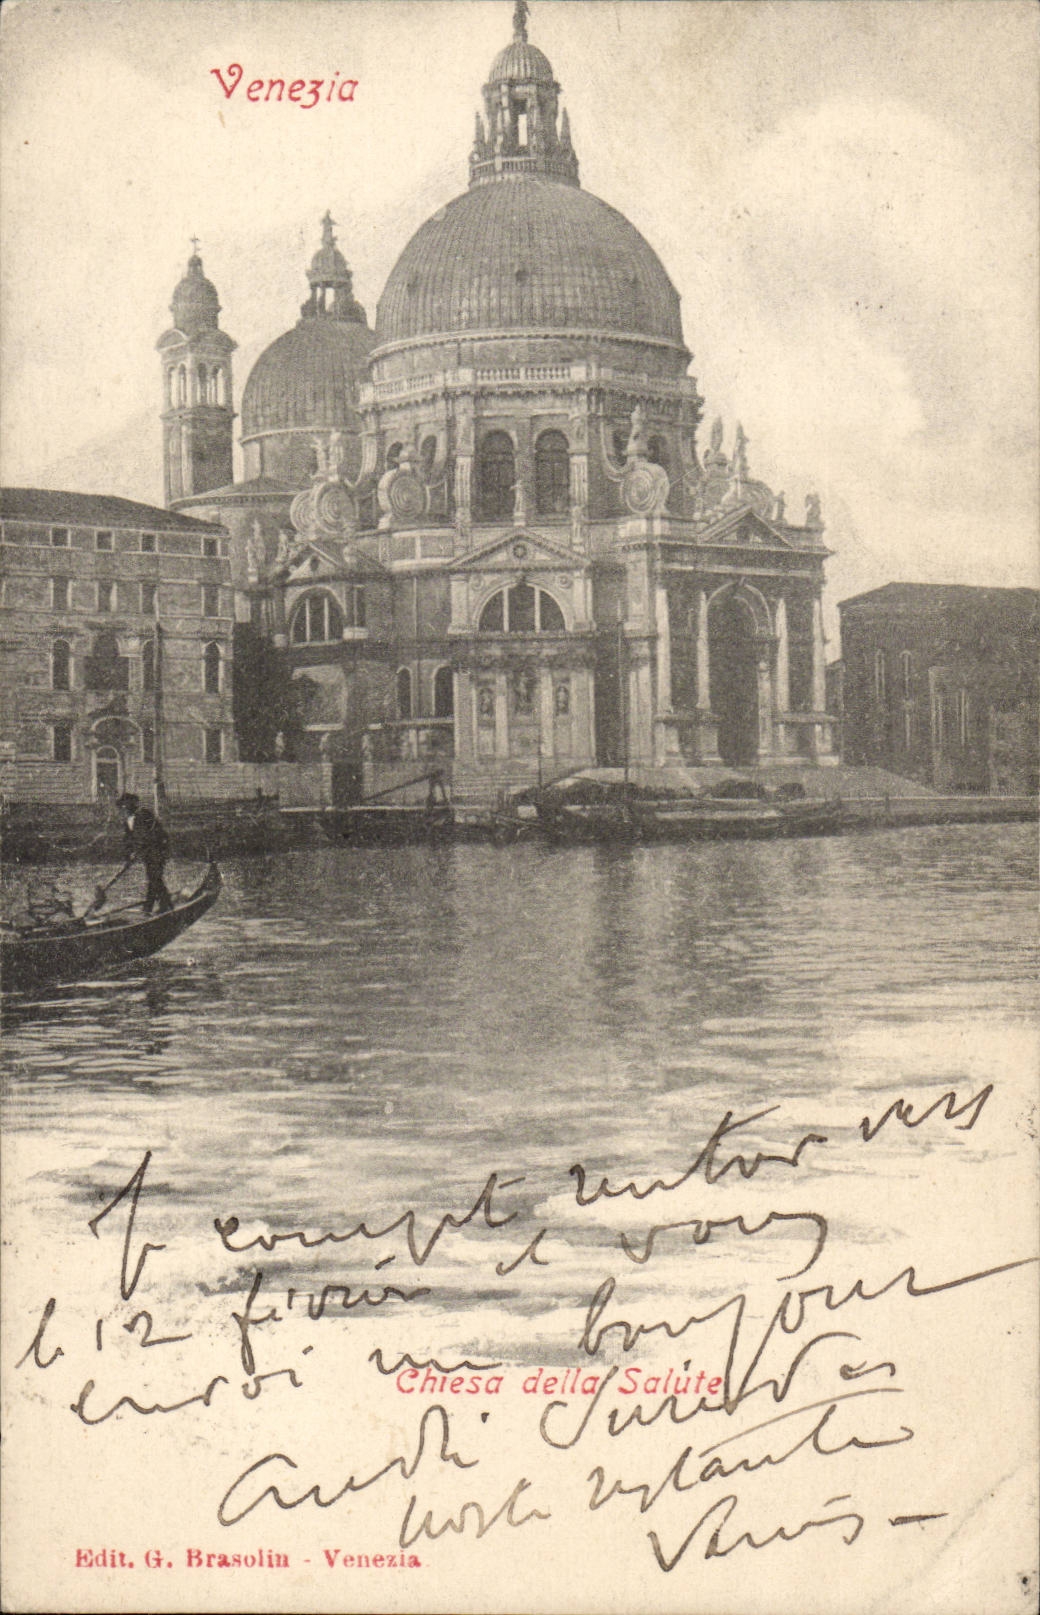 Venezia
Je compte rentrer vers
le 12 février et vous
envoi un bonjour
Chiesa della Salute
poste restante
Venise
Edit. G. Brasolin - Venezia